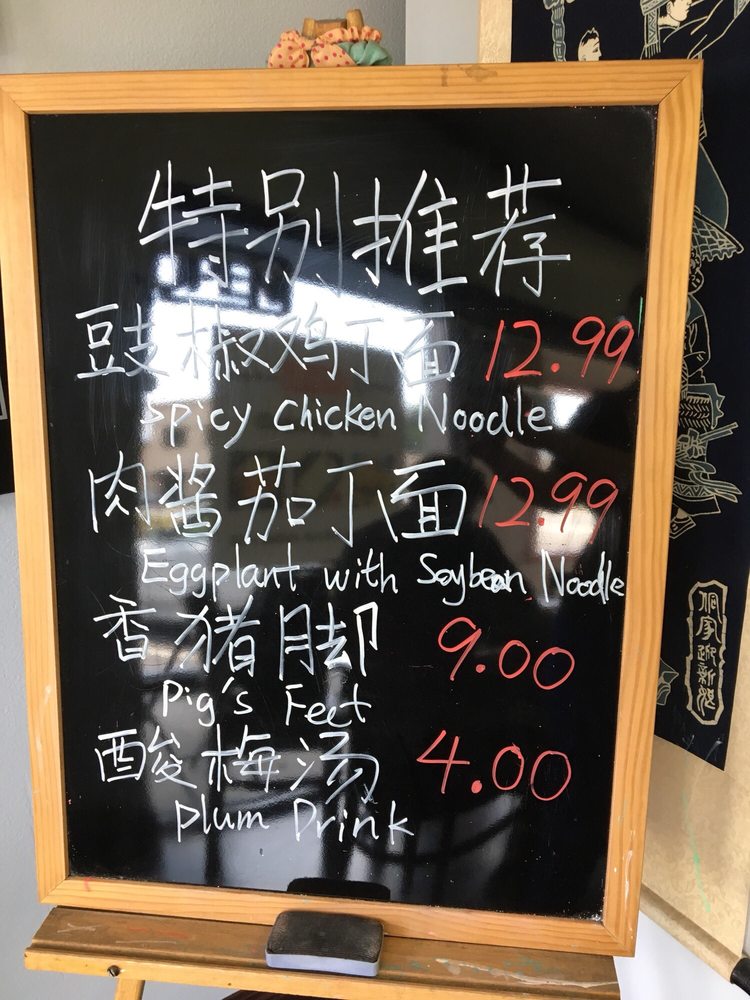 特别推荐
豉椒鸡丁面 12.99
Spicy Chicken Noodle
肉酱茄丁面 12.99
Eggplant with Soybean Noodle
香猪脚 9.00
Pig's Feet
酸梅汤 4.00
Plum Drink